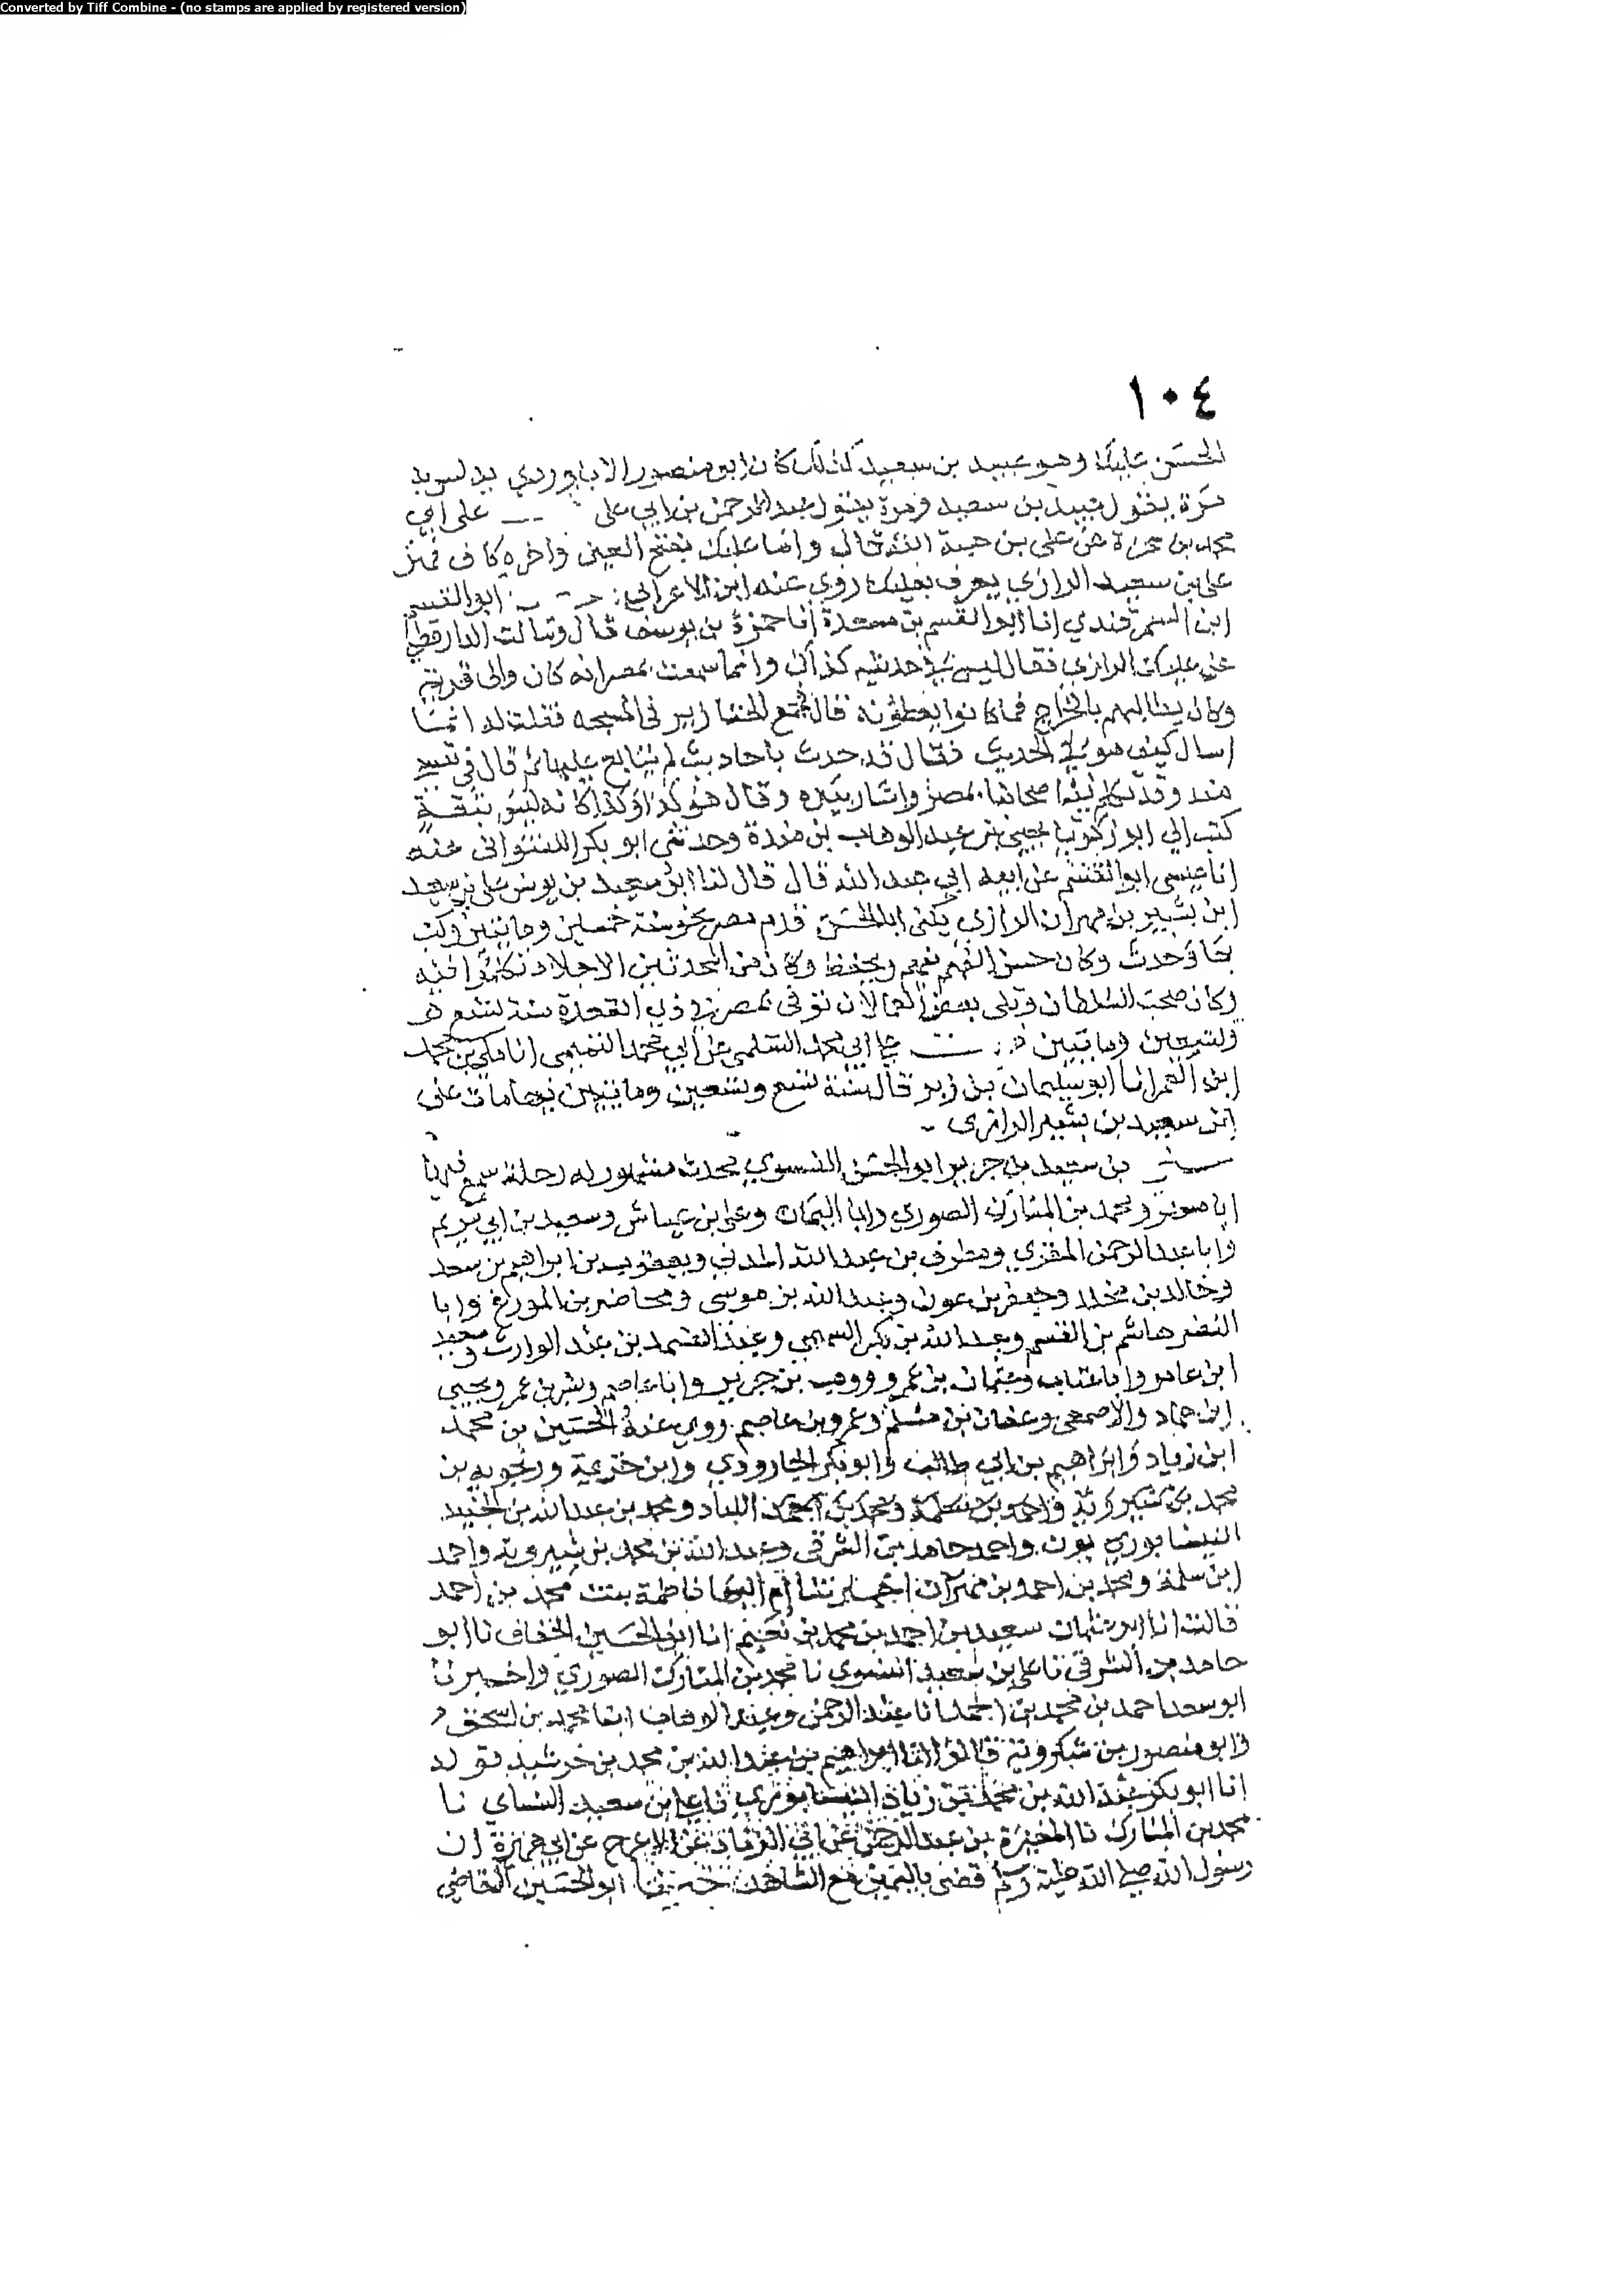 Converted by Tiff Combine - (no stamps are applied by registered version)
١٠٤
الحسن عليك وهو عبيد بن سعيد كذلك كان ابو منصور الاباوردي
مرة يقول عبيد بن سعيد ومرة يقول عبد الرحمن بن ابي علي على ابي
محمد بن حمزة عن علي بن هبة الله قال واما عليك بفتح العين واخره كاف فهو
علي بن سعيد الرازي يعرف بعليك روى عنه ابن الاعرابي ابو القسم
ابن السمرقندي انا ابو القسم بن مسعدة انا حمزة بن يوسف قال وسالت الدارقطني
عن عليك الرازي فقال ليس في حديثه كذاك وانما سمعت بمصر انه كان والي قرية
وكان يطالبهم بالخراج فما كانوا يعطونه قال فجمع الخنازير في المسجد فقلت له انما
اسال كيف هو في الحديث فقال قد حدث باحاديث لم يتابع عليها ثم قال في نفسي
منه وقد تكلم فيه اصحابنا بمصر واشار بيده وقال هو كذا وكذا كانه ليس بثقة
كتب الي ابو زكريا يحيى بن عبد الوهاب بن مندة وحدثني ابو بكر اللفتواني عنه
انا عمي ابو القسم عن ابيه ابي عبد الله قال قال لنا ابو سعيد بن يونس علي بن سعيد
ابن بشير بن مهران الرازي يكنى ابا الحسن قدم مصر نحو سنة خمسين ومايتين وكتب
بها وحدث وكان حسن الفهم يفهم ويحفظ وكان من المحدثين الاجلاد تكلموا فيه
وكان صحب السلطان وولي بعض العمالات توفي بمصر في ذي القعدة سنة تسع
وتسعين ومايتين على ابي محمد السلمي عن ابي محمد التميمي انا مكي بن محمد
ابن الغمر انا ابو سليمان بن زبر قال سنة تسع وتسعين ومايتين فيها مات علي
ابن سعيد بن بشير الرازي
بن سعيد بن جرير ابو الحسن النسوي محدث مشهور له رحلة سمع فيها
ابا مسهر ومحمد بن المبارك الصوري وابا اليمان وعلي بن عياش وسعيد بن ابي مريم
وابا عبد الرحمن المقري ومطرف بن عبد الله المدني ويعقوب بن ابراهيم بن سعد
وخالد بن مخلد وجعفر بن عون وعبيد الله بن موسى ومحاضر بن المورع وابا
النضر هاشم بن القسم وعبد الله بن بكر السهمي وعبد الصمد بن عبد الوارث وسعيد
ابن عامر وابا عتاب وعثمان بن عمر ووهب بن جرير وابا عاصم وبشر بن عمر ويحيى
ابن حماد والاصمعي وعفان بن مسلم وعمرو بن عاصم روى عنه الحسين بن محمد
ابن زياد وابراهيم بن ابي طالب وابو بكر الجارودي وابن خزيمة وزنجويه بن
محمد بن واحمد بن سلمة ومحمد بن اللباد ومحمد بن عبد الله بن الجنيد
النيسابوريون واحمد حامد بن الشرقي وعبد الله بن محمد بن شيرويه واحمد
ابن سلمة ومحمد بن احمد بن مهران اخبرتنا ام البها فاطمة بنت محمد بن احمد
قالت انا ابو عثمان سعيد بن احمد بن محمد بن نعيم انا ابو الحسين الخفاف نا ابو
حامد بن الشرقي نا علي بن سعيد النسوي نا محمد بن المبارك الصوري واخبرنا
ابو سعد احمد بن محمد بن احمد انا عبد الرحمن وعبد الوهاب ابنا محمد بن اسحق
وابو منصور بن شكرويه قالوا انا ابراهيم بن عبد الله بن محمد بن خرشيد قوله
انا ابو بكر عبد الله بن محمد بن زياد النيسابوري نا علي بن سعيد النساي نا
محمد بن المبارك نا المغيرة بن عبد الرحمن عن ابي الزناد عن الاعرج عن ابي هريرة ان
رسول الله صلى الله عليه وسلم قضى باليمين مع الشاهد حدثنا ابو الحسين القاضي